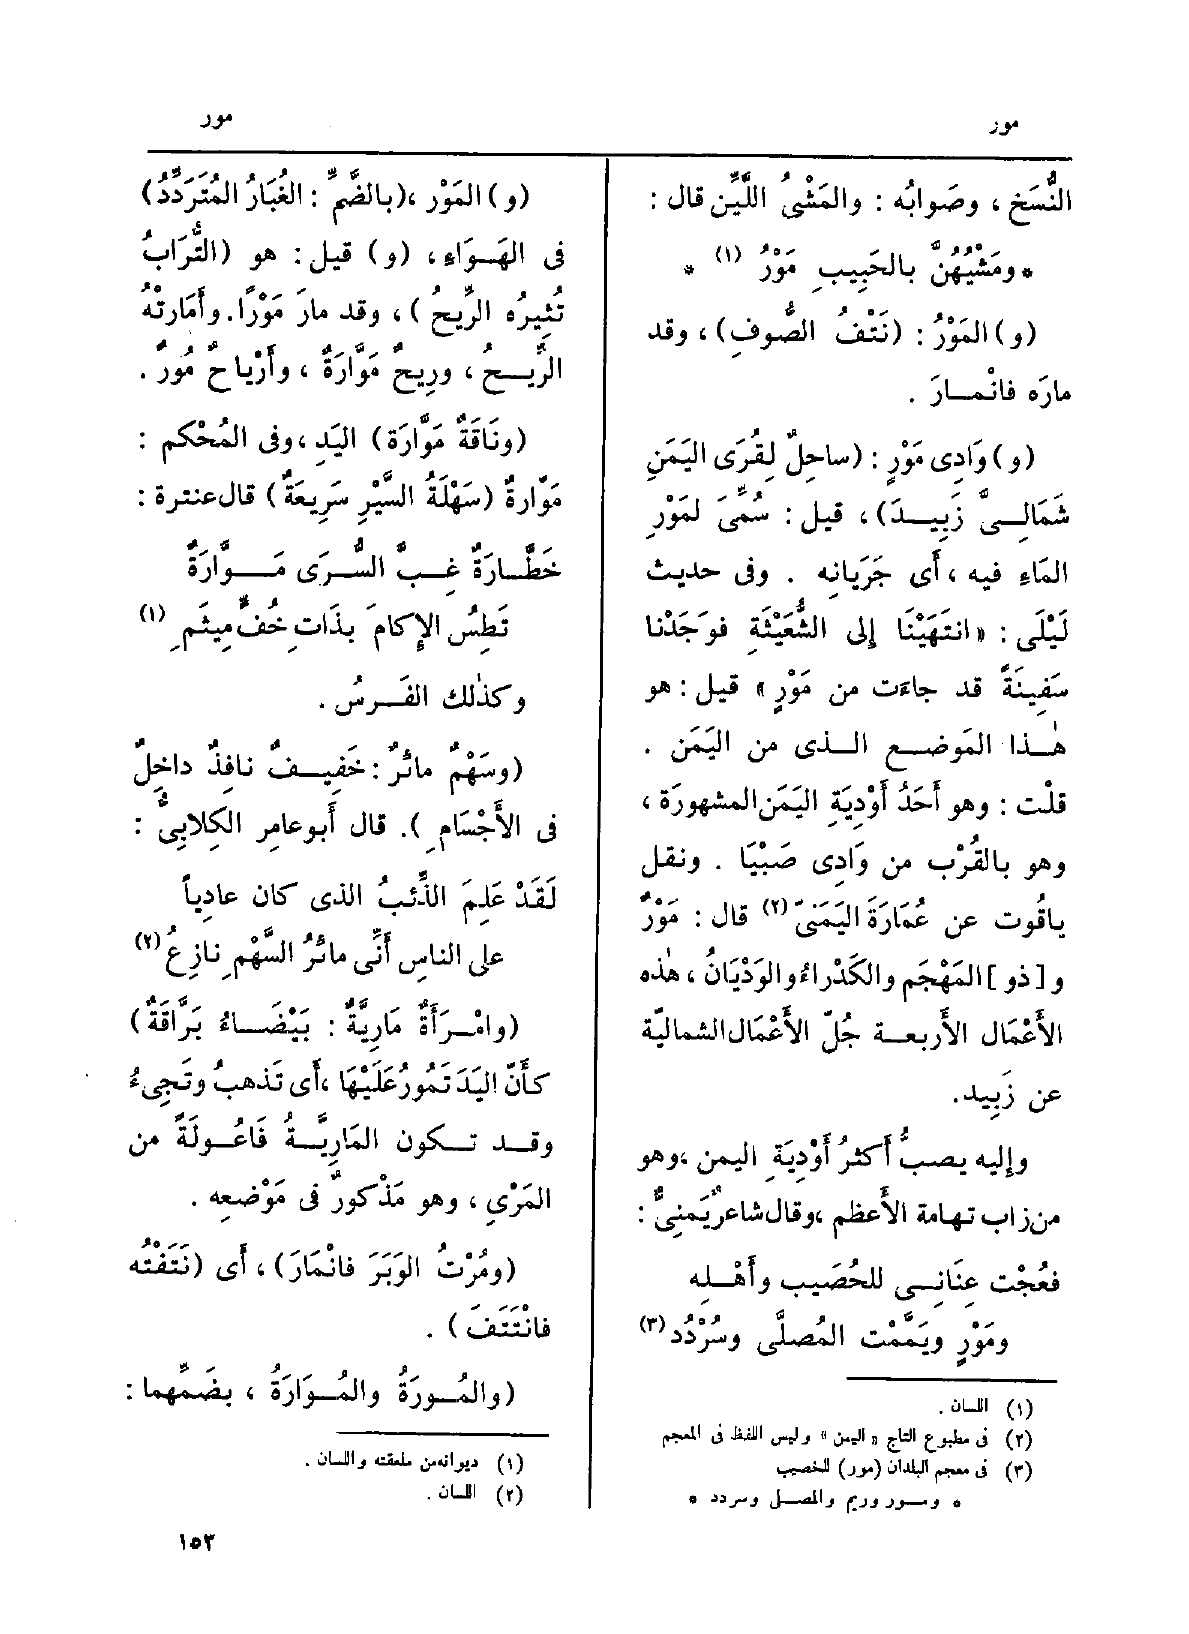 مور
مور
النُّسَخِ ، وصَوابُه : والمَشْىُ اللَّيِّن قال :
* ومَشْيُهُنَّ بالحَبِيبِ مَوْرُ (١) *
(و) المَوْرُ : (نَتْفُ الصُّوفِ) ، وقد
مارَه فانْمــارَ .
(و) وَادِى مَوْرٍ : (ساحِلٌ لِقُرَى اليَمَنِ
شَمَالِــىَّ زَبِيــدَ) ، قيل : سُمِّىَ لمَوْرِ
المَاءِ فيه ، أى جَرَيانِه . وفى حديث
لَيْلَى : « انتَهَيْنَا إِلى الشُّعَيْثَةِ فوَجَدْنا
سَفِينَةً قد جاءَت من مَوْرٍ » قيل : هو
هٰــذا المَوضــع الــذى من اليَمَن .
قلْت : وهو أَحَدُ أَوْدِيَةِ اليَمَن المشهورَة ،
وهو بالقُرْب من وَادِى صَبْيَا . ونقل
ياقُوت عن عُمَارَةَ اليَمَنىّ (٢) قال : مَوْرٌ
و [ذو] المَهْجَم والكَدْرَاءُ والوَدْيَانُ ، هٰذه
الأَعْمَال الأَربعــة جُلّ الأَعْمَال الشماليّة
عن زَبِيد.
وإِليه يصبُّ أَكثرُ أَوْدِيَةِ اليمن ، وهو
من زاب تهامة الأَعظم ، وقال شاعرٌ يَمَنِىٌّ :
فعُجْت عِنَانِــى للحُصَيب وأَهْــلِه
ومَوْرٍ ويَمَّمْت المُصلَّى وسُرْدُد (٣)
(١) اللسان .
(٢) فى مطبوع التاج « اليمن » وليس اللفظ فى المعجم
(٣) فى معجم البلدان (مور) للخصيب
* ومــور وريم والمصــل وسردد *
(و) المَوْر ، (بالضَّمّ : الغُبَارُ المُتَرَدِّدُ)
فى الهَــوَاءِ ، (و) قيل : هو (التُّرَابُ
تُثِيرُه الرِّيحُ) ، وقد مارَ مَوْرًا. وأَمَارتْهُ
الرِّيــحُ ، ورِيحٌ مَوَّارَةٌ ، وأَرْيَاحٌ مُورٌ .
(ونَاقَةٌ مَوَّارَة) اليَدِ ، وفى المُحْكم :
مَوّارةٌ (سَهْلَةُ السَّيْرِ سَرِيعَةٌ) قال عنترة :
خَطَّــارَةٌ غِــبَّ السُّــرَى مَــوَّارَةٌ
تَطِسُ الإِكامَ بذَاتِ خُفٍّ مِيثَمِ (١)
وكذٰلك الفَــرسُ .
(وسَهْمٌ مائرٌ : خَفِيــفٌ نافِذٌ داخِلٌ
فى الأَجْسَامِ) . قال أَبو عامِر الكِلابِىُّ :
لَقَدْ عَلِمَ الذِّئبُ الذى كان عادِياً
على الناسِ أَنِّى مائرُ السَّهْمِ نازِعُ (٢)
(وامْــرَأَةٌ مَارِيَّةٌ : بَيْضَــاءُ بَرَّاقَةٌ)
كأَنّ اليَدَ تَمُورُ عَلَيْهَا ، أَى تَذهبُ وتَجِىءُ
وقــد تــكون المَارِيَّــةُ فَاعُــولَةً من
المَرْىِ ، وهو مَذْكورٌ فى مَوْضعِه .
(ومُرْتُ الوَبَرَ فانْمَارَ) ، أَى (نَتَفْتُه
فانْتَتَفَ) .
(والمُــورَةُ والمُــوَارَةُ ، بضَمِّهما :
(١) ديوانه من معلقته واللسان .
(٢) اللسان .
١٥٣